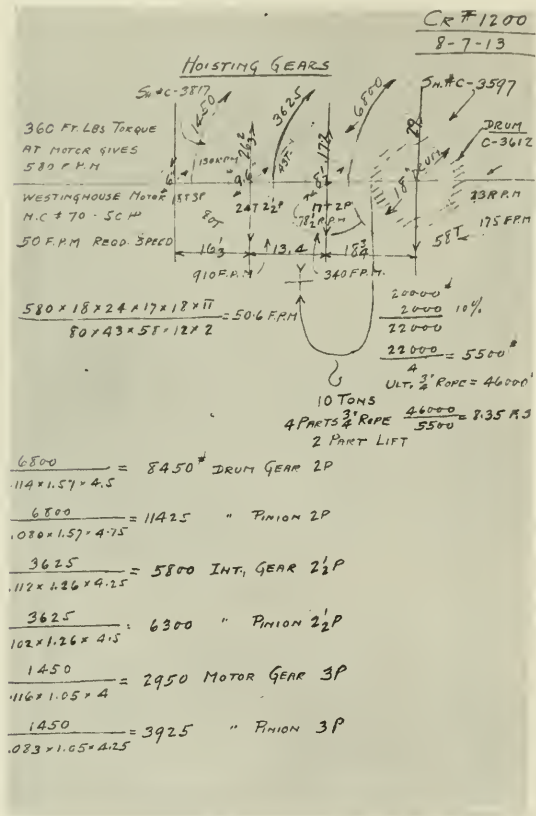 CR # 1200
8-7-13
HOISTING GEARS
SH. # C-3817
SH. # C-3597
1450
3625
6800
360 FT. LBS TORQUE
AT MOTOR GIVES
580 R.P.M
DRUM
C-3612
18" DRUM
WESTINGHOUSE MOTOR
M.C # 70 - 50 HP
18T 3P
80T
24T 2½P
17T 2P
78½ R.P.M
23 R.P.M
175 F.P.M
58T
50 F.P.M REQD. SPEED
16⅓
13.4
18¾
910 F.P.M
340 F.P.M.
580 × 18 × 24 × 17 × 18 × π
80 × 43 × 58 × 12 × 2
= 50.6 F.P.M
20000#
2000 10%
22000
22000
4
= 5500#
ULT. ¾" ROPE = 46000#
10 TONS
4 PARTS ¾" ROPE 46000
5500
= 8.35 F.S
2 PART LIFT
6800
.114 × 1.57 × 4.5
= 8450# DRUM GEAR 2P
6800
.080 × 1.57 × 4.75
= 11425 " PINION 2P
3625
.112 × 1.26 × 4.25
= 5800 INT., GEAR 2½P
3625
.102 × 1.26 × 4.5
= 6300 " PINION 2½P
1450
.116 × 1.05 × 4
= 2950 MOTOR GEAR 3P
1450
.083 × 1.05 × 4.25
= 3925 " PINION 3P